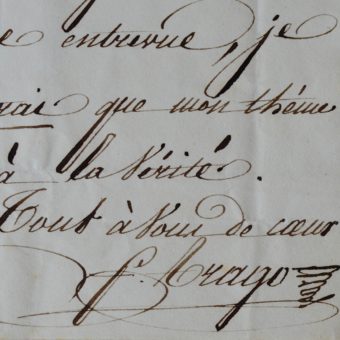 e entrevue, je
rai que mon thême
à la Vérité.
Tout à Vous de cœur
f. Arago